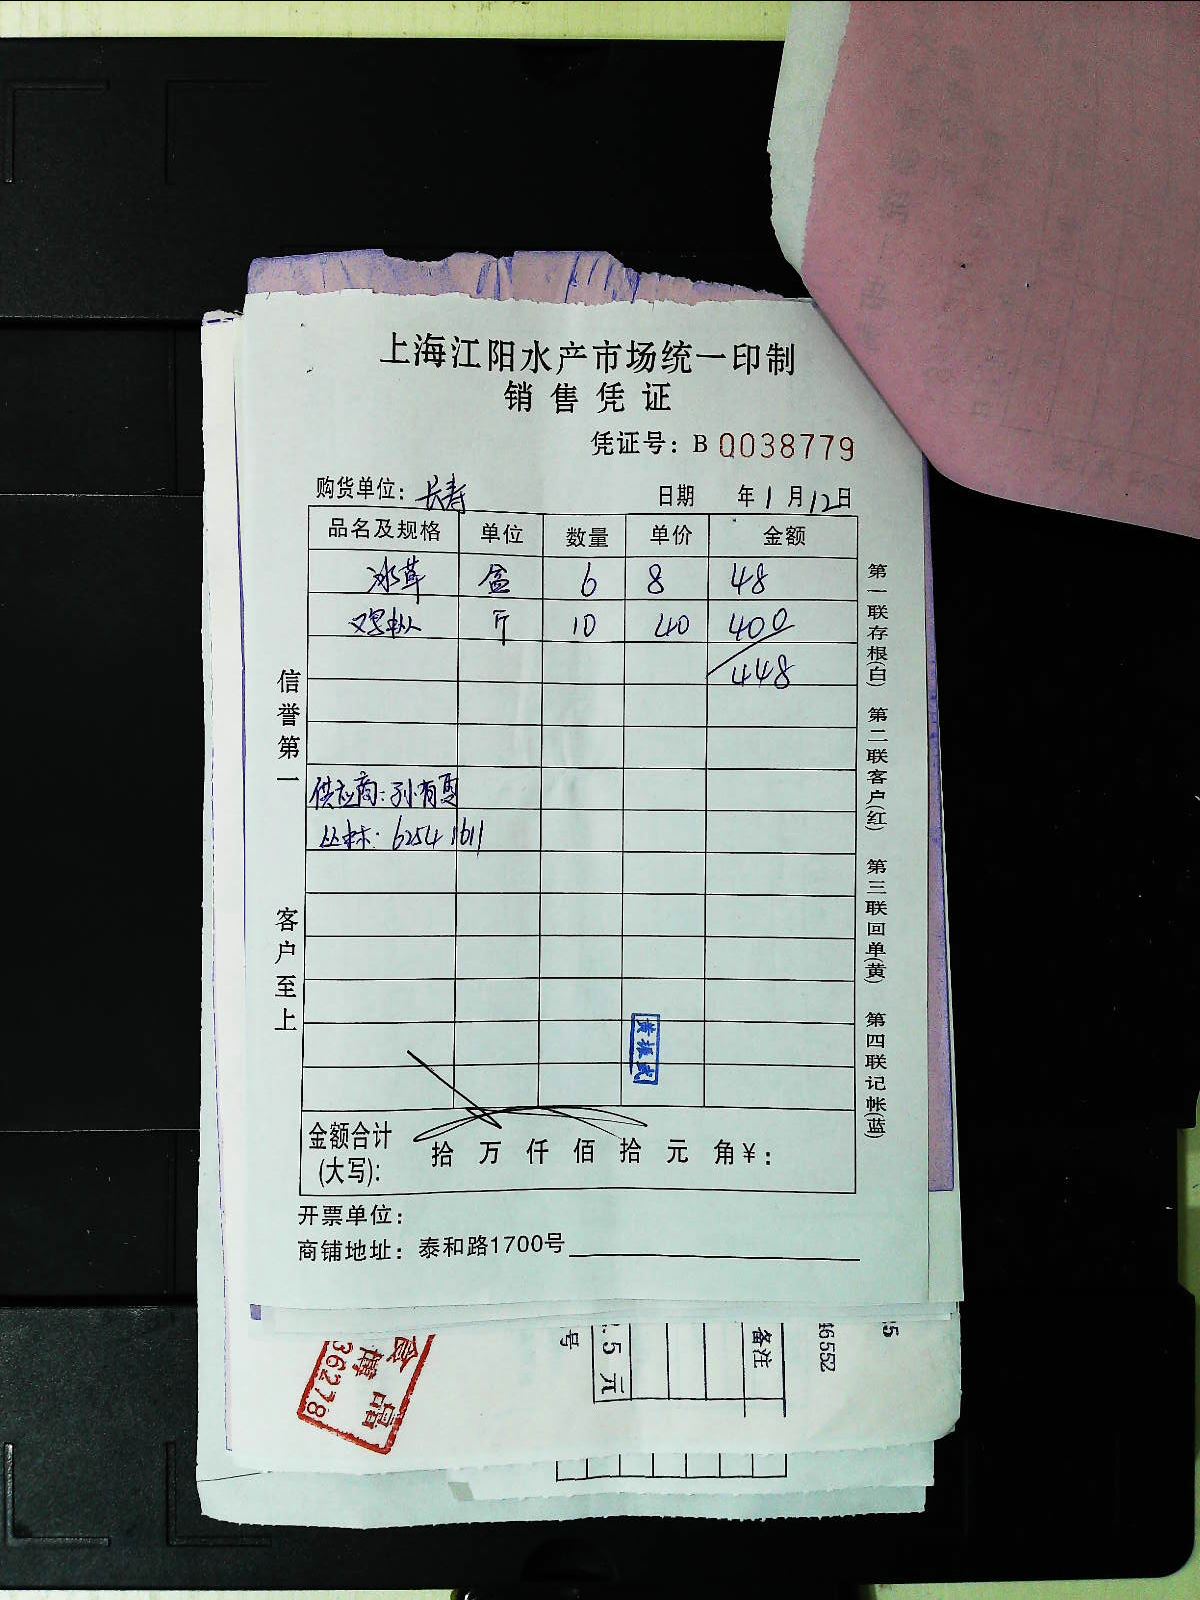 上海江阳水产市场统一印制
销售凭证
凭证号：B 0038779
购货单位：长寿 日期 年1月12日
品名及规格 单位 数量 单价 金额
冰草 盒 6 8 48
鸡枞 斤 10 40 400
448
供应商：孙有夏
丛林：62541611
黄振武
金额合计
(大写)： 拾 万 仟 佰 拾 元 角 ¥：
开票单位：
商铺地址：泰和路1700号
信誉第一
客户至上
第一联存根(白) 第二联客户(红) 第三联回单(黄) 第四联记帐(蓝)
食品
36278
号
.5 元
备注
46552
15